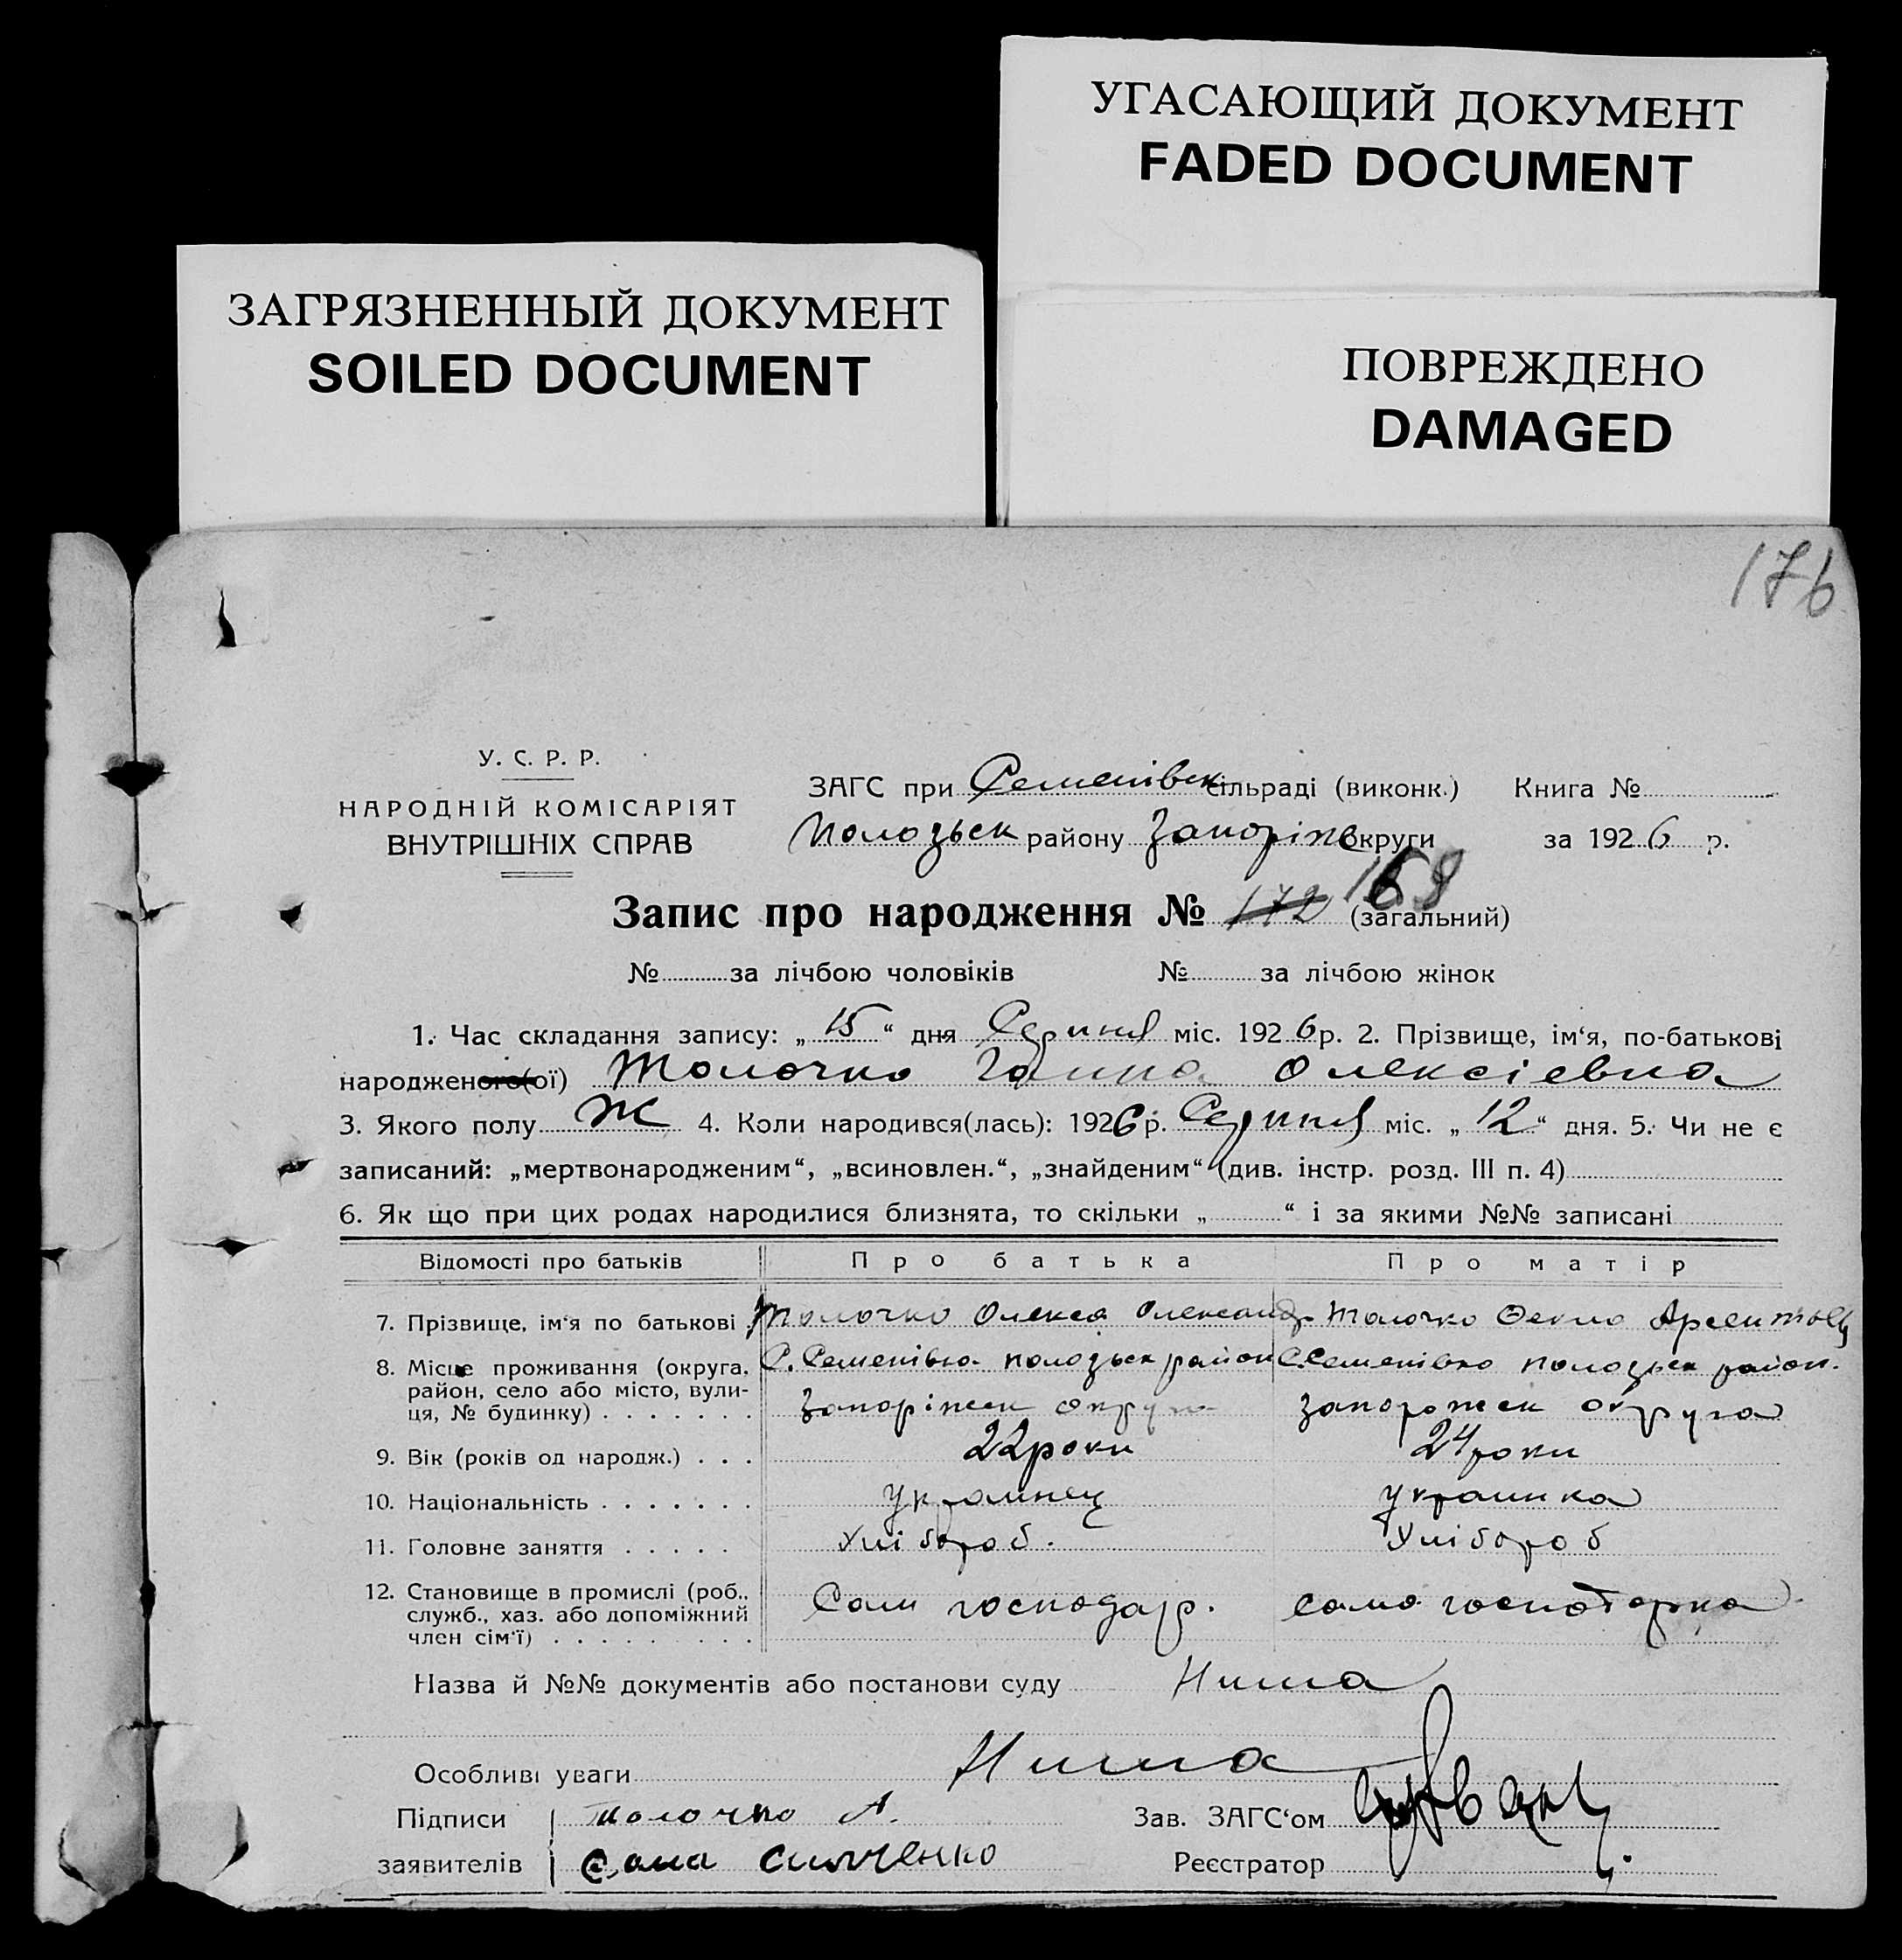 УГАСАЮЩИЙ ДОКУМЕНТ
FADED DOCUMENT
ЗАГРЯЗНЕННЫЙ ДОКУМЕНТ
SOILED DOCUMENT
ПОВРЕЖДЕНО
DAMAGED
176
У. С. Р. Р.
НАРОДНІЙ КОМІСАРІЯТ
ВНУТРІШНІХ СПРАВ
ЗАГС при Семенівск сільраді (виконк.) Книга №
Пологзьск району Запоріж округи за 1926 р.
Запис про народження № 172 168 (загальний)
№ за лічбою чоловіків № за лічбою жінок
1. Час складання запису: „15“ дня Серпня міс. 1926 р. 2. Прізвище, ім‘я, по-батькові
народженого(ої) Толочко Ганна Олексієвна
3. Якого полу Ж 4. Коли народився(лась): 1926 р. Серпня міс. „12“ дня. 5. Чи не є
записаний: „мертвонародженим“, „всиновлен.“, „знайденим“ (див. інстр. розд. III п. 4)
6. Як що при цих родах народилися близнята, то скільки „ “ і за якими №№ записані
Відомості про батьків Про батька Про матір
7. Прізвище, ім‘я по батькові Толочко Олекса Олександр. Толочко Текла
8. Місце проживання (округа, С. Семенівка пологзьск район С. Семенівка пологзьск район.
район, село або місто, вули-
ця, № будинку) Запоріжск округа запорожск округа
9. Вік (років од народж.) 22 роки 24 роки
10. Національність українець українка
11. Головне заняття Хлібороб. Хлібороб
12. Становище в промислі (роб., Сам господар. сама господарка
служб., хаз. або допоміжний
член сім‘ї)
Назва й №№ документів або постанови суду Нима
Особливі уваги Нима
Підписи Толочко А. Зав. ЗАГС‘ом
заявителів Реєстратор